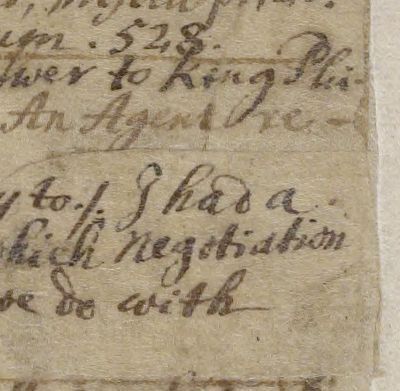 528.
wer to King Phi-
An Agent re-
y to./. I had a
which negotiation
we do with